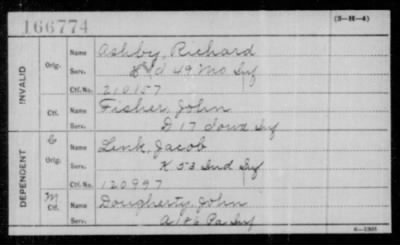 166774
(3-H-4)
INVALID
Orig.
Name Ashby, Richard
Serv. 49 Mo Inf
Ctf. No. 210157
Ctf.
Name Fisher, John
Serv. D 17 Iowa Inf
DEPENDENT
C
Orig.
Name Link, Jacob
Serv. K 53 Ind Inf
Ctf. No. 120997
M
Ctf.
Name Dougherty, John
Serv. Pa Inf